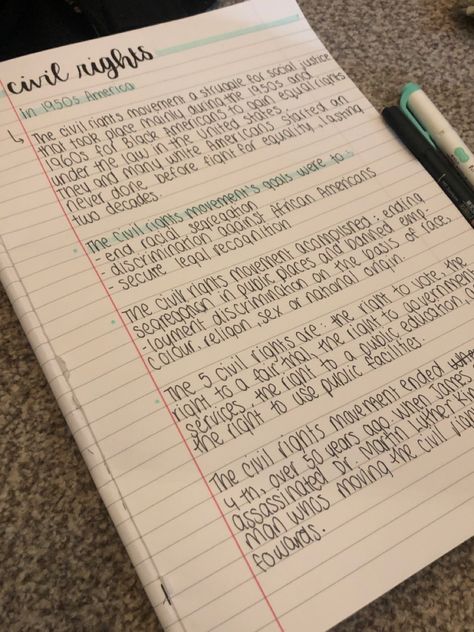 civil rights
in 1950s America
↳ The civil rights movement a struggle for social justice
that took place mainly during the 1950s and
1960s for Black Americans to gain equal rights
under the law in the United States.
They and many white Americans started an
never done before fight for equality, lasting
two decades.
The civil rights movement's goals were to:
- end racial segregation
- discrimination against African Americans
- secure legal recognition
The civil rights movement acomplished: ending
segregation in public places and banned emp-
-loyment discrimination on the basis of race,
colour, religon, sex or national origin.
The 5 civil rights are: the right to vote, the
right to a fair trial, the right to government
services, the right to a public education
the right to use public facilities.
The civil rights movement ended
4th, over 50 years ago when James
assassinated Dr. Martin Luther
man moving, the civil
towards.